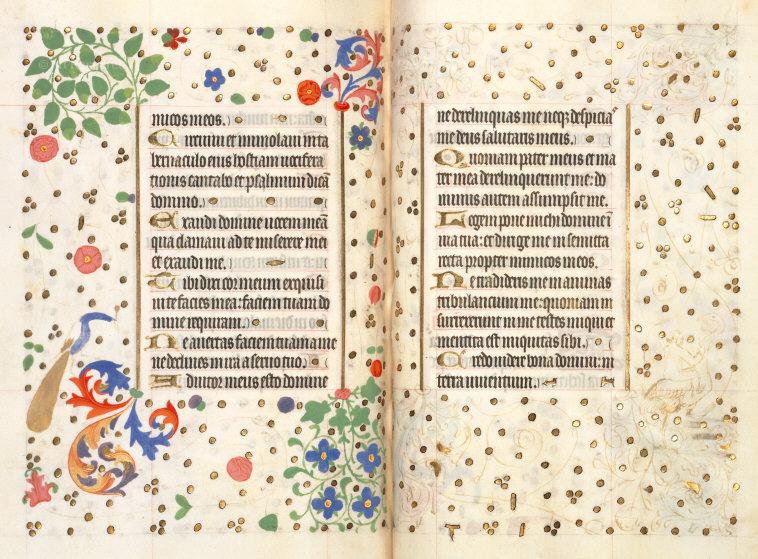 micos meos.
Circuiui et immolaui in ta
bernaculo eius hostiam uocifera
tionis cantabo et psalmum dicã
domino.
Exaudi domine uocem meã
qua clamaui ad te miserere mei
et exaudi me.
Tibi dixit cor meum exquisi
uit te facies mea: faciem tuam do
mine requiram.
Ne auertas faciem tuam a me
ne declines in ira a seruo tuo.
Adiutor meus esto domine
ne derelinquas me neqꝫ despicias
me deus salutaris meus.
Quoniam pater meus et ma
ter mea derelinquerunt me: do
minus autem assumpsit me.
Legem pone michi domine ĩ
uia tua: et dirige me in semita
recta propter inimicos meos.
Ne tradideris me in animas
tribulancium me: quoniam in
surrexerunt in me testes iniqui et
mentita est iniquitas sibi.
Credo uidere bona domini: in
terra uiuentium.